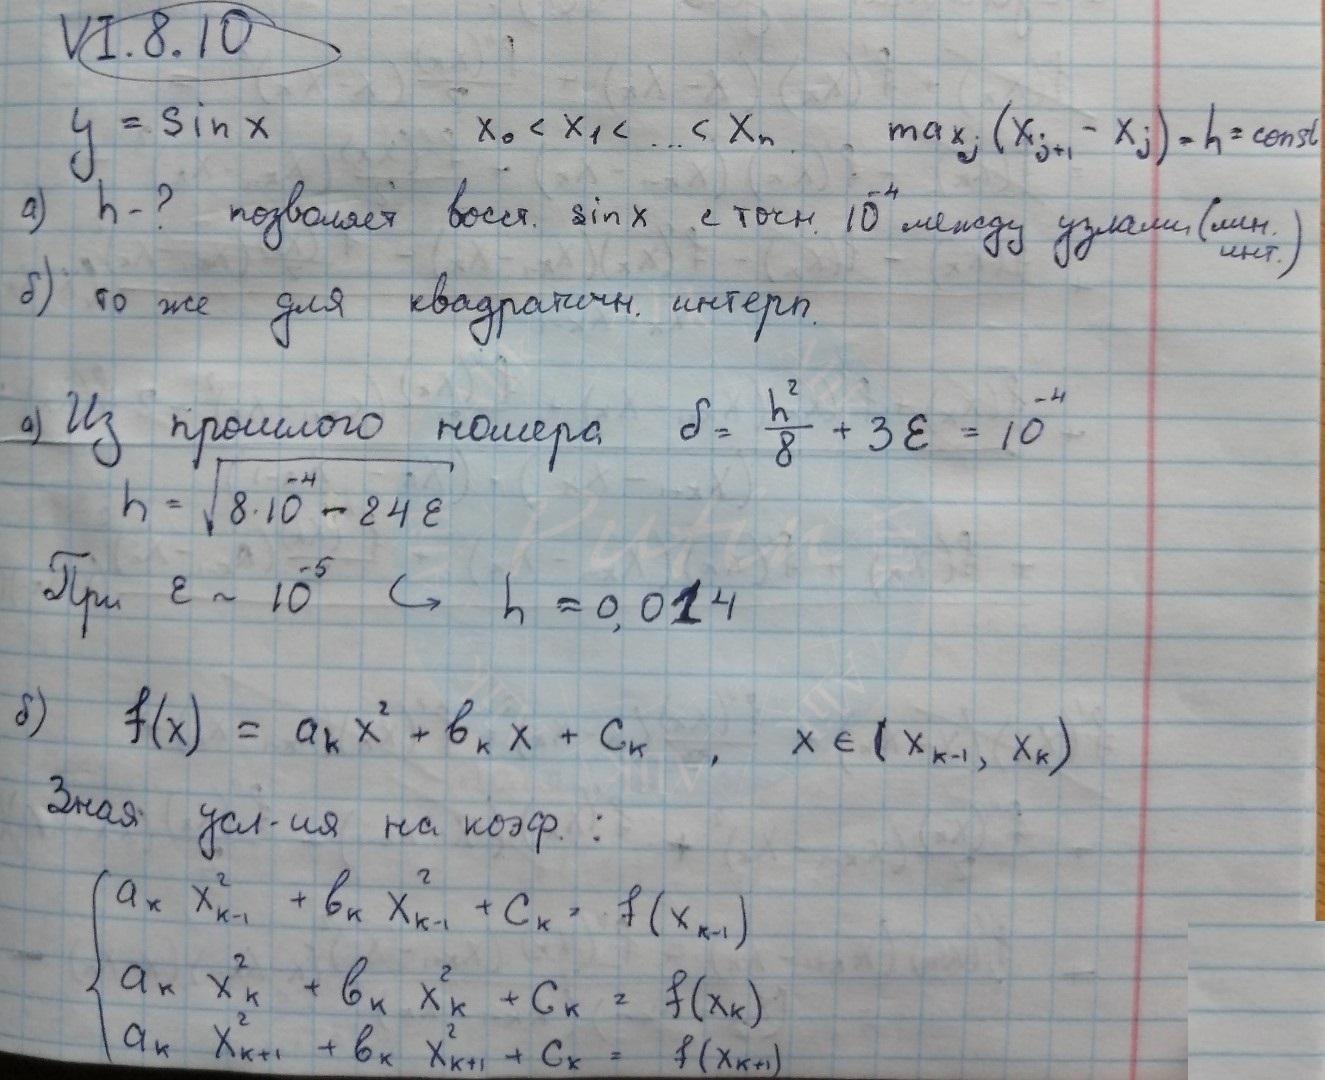 VI.8.10
y = sin x x₀ < x₁ < ... < xₙ max_xⱼ (xⱼ₊₁ - xⱼ) = h = const
а) h - ? позволяет восст. sin x с точн. 10⁻⁴ между узлами (лин. инт.)
б) то же для квадратичн. интерп.
а) Из прошлого номера δ = h²/8 + 3ε = 10⁻⁴
h = √(8·10⁻⁴ - 24ε)
При ε ~ 10⁻⁵ ↪ h = 0,014
б) f(x) = aₖx² + bₖx + cₖ, x ∈ (xₖ₋₁, xₖ)
Зная усл-ия на коэф.:
aₖ x²ₖ₋₁ + bₖ x²ₖ₋₁ + cₖ = f(xₖ₋₁)
aₖ x²ₖ + bₖ x²ₖ + cₖ = f(xₖ)
aₖ x²ₖ₊₁ + bₖ x²ₖ₊₁ + cₖ = f(xₖ₊₁)